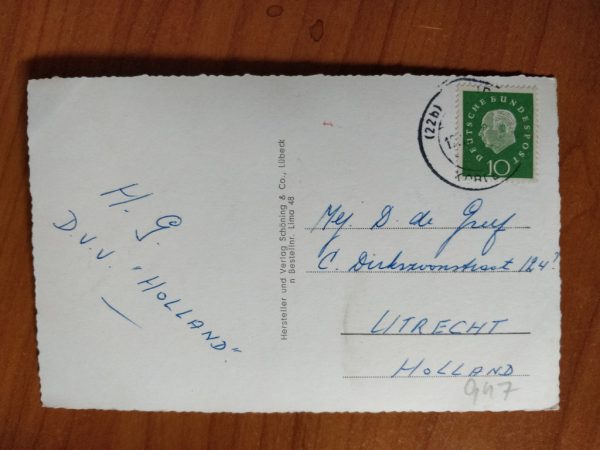 H. G.
D.V.V. "HOLLAND"
Hersteller und Verlag Schöning & Co., Lübeck
n Bestellnr. Lima 48
1
(22b)
DEUTSCHE BUNDESPOST
10
Mej. D. de Greef
C. Dirkszoonstraat 124?
UTRECHT
HOLLAND